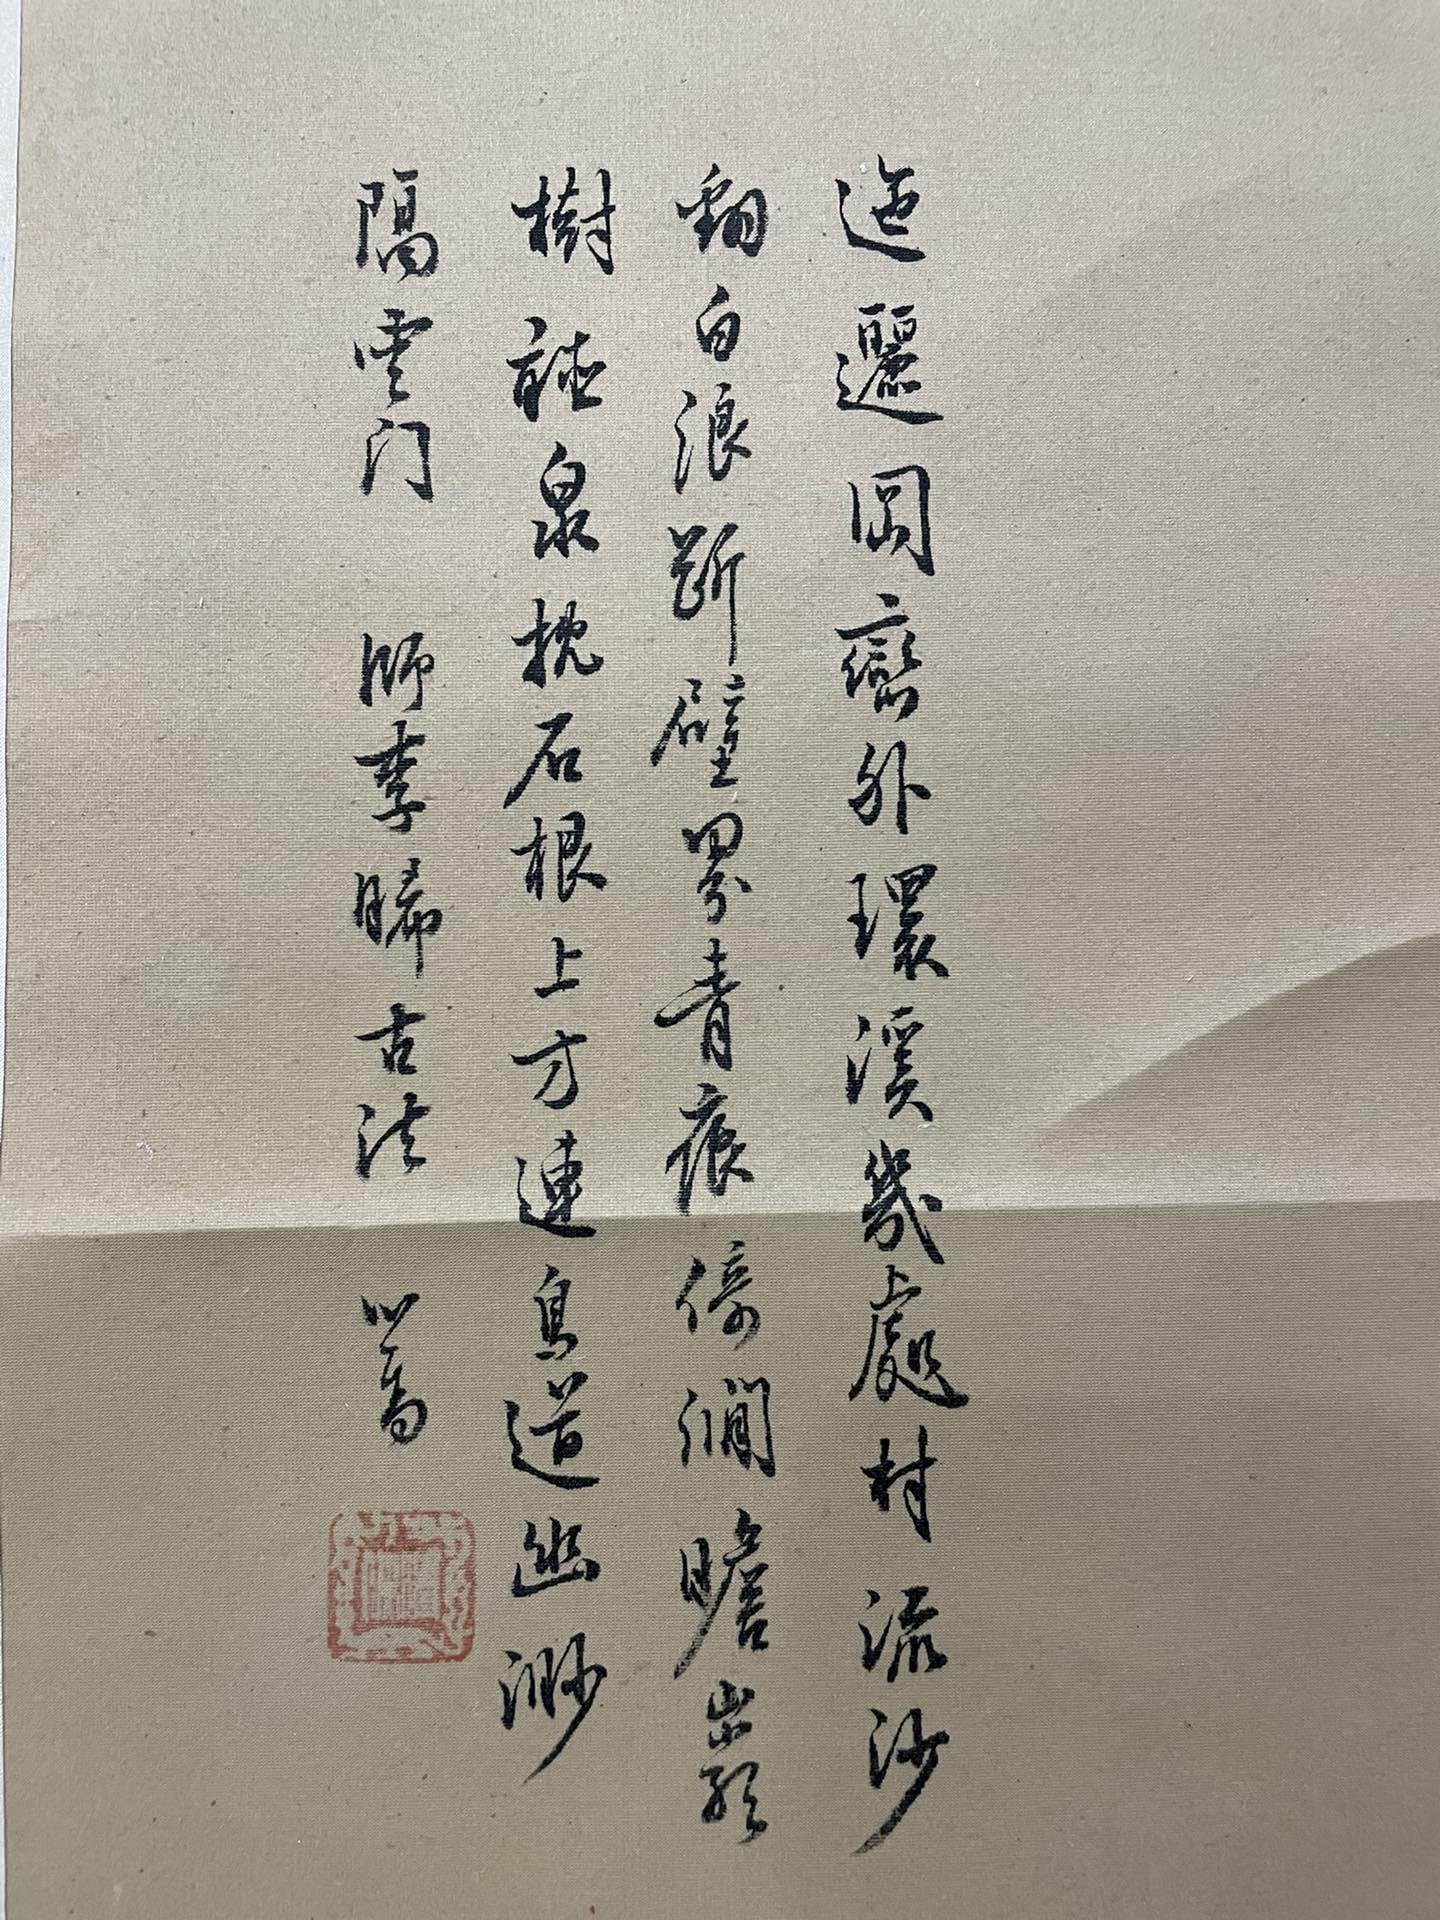 迤邐岡巒外環溪幾處村流沙
翻白浪斷壁界青痕倚澗瞻巖
樹聽泉枕石根上方連鳥道幽渺
隔雲门 師李晞古法 心畬